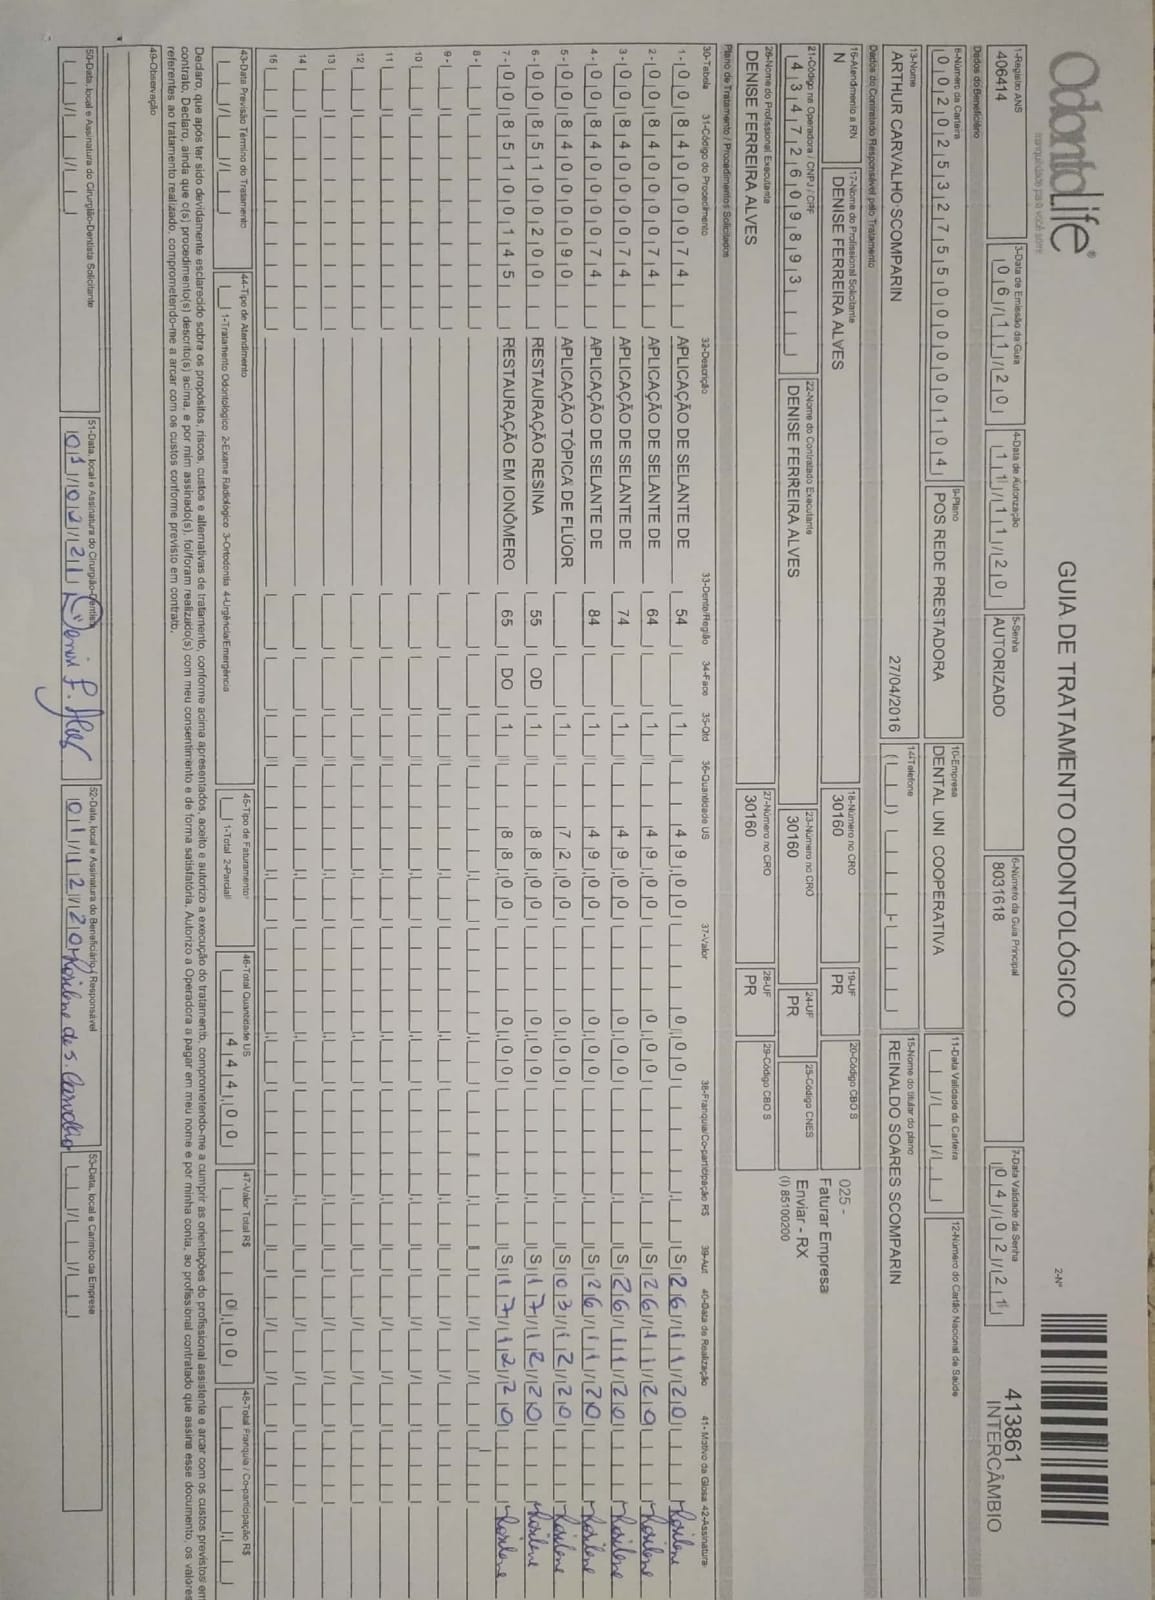 OdontoLife®
tranquilidade pra você sorrir
GUIA DE TRATAMENTO ODONTOLÓGICO
2-Nº
413861
INTERCÂMBIO
1-Registro ANS
406414
3-Data de Emissão da Guia
06/11/20
4-Data de Autorização
11/11/20
5-Senha
AUTORIZADO
6-Número da Guia Principal
8031618
7-Data Validade da Senha
04/02/21
Dados do Beneficiário
8-Número da Carteira
00202532755000000104
9-Plano
POS REDE PRESTADORA
10-Empresa
DENTAL UNI COOPERATIVA
11-Data Validade da Carteira
12-Número do Cartão Nacional de Saúde
13-Nome
ARTHUR CARVALHO SCOMPARIN 27/04/2016
14-Telefone
15-Nome do titular do plano
REINALDO SOARES SCOMPARIN
Dados do Contratado Responsável pelo Tratamento
16-Atendimento a RN
N
17-Nome do Profissional Solicitante
DENISE FERREIRA ALVES
18-Número no CRO
30160
19-UF
PR
20-Código CBO S
025 -
Faturar Empresa
Enviar - RX
(I) 85100200
21-Código na Operadora / CNPJ / CPF
43472609893
22-Nome do Contratado Executante
DENISE FERREIRA ALVES
23-Número no CRO
30160
24-UF
PR
25-Código CNES
26-Nome do Profissional Executante
DENISE FERREIRA ALVES
27-Número no CRO
30160
28-UF
PR
29-Código CBO S
Plano de Tratamento / Procedimentos Solicitados
30-Tabela 31-Código do Procedimento 32-Descrição 33-Dente/Região 34-Face 35-Qtd 36-Quantidade US 37-Valor 38-Franquia/Co-participação R$ 39-Aut 40-Data de Realização 41- Motivo da Glosa 42-Assinatura
1- 00 84000074 APLICAÇÃO DE SELANTE DE 54 1 49,00 0,00 S 26/11/20 Rosilene
2- 00 84000074 APLICAÇÃO DE SELANTE DE 64 1 49,00 0,00 S 26/11/20 Rosilene
3- 00 84000074 APLICAÇÃO DE SELANTE DE 74 1 49,00 0,00 S 26/11/20 Rosilene
4- 00 84000074 APLICAÇÃO DE SELANTE DE 84 1 49,00 0,00 S 26/11/20 Rosilene
5- 00 84000090 APLICAÇÃO TÓPICA DE FLÚOR 1 72,00 0,00 S 03/12/20 Rosilene
6- 00 85100200 RESTAURAÇÃO RESINA 55 OD 1 88,00 0,00 S 17/12/20 Rosilene
7- 00 85100145 RESTAURAÇÃO EM IONÔMERO 65 DO 1 88,00 0,00 S 17/12/20 Rosilene
8-
9-
10
11
12
13
14
15
43-Data Previsão Término do Tratamento
44-Tipo de Atendimento
1-Tratamento Odontológico 2-Exame Radiológico 3-Ortodontia 4-Urgência/Emergência
45-Tipo de Faturamento
1-Total 2-Parcial
46-Total Quantidade US
444,00
47-Valor Total R$
0,00
48-Total Franquia / Co-participação R$
Declaro, que após ter sido devidamente esclarecido sobre os propósitos, riscos, custos e alternativas de tratamento, conforme acima apresentados, aceito e autorizo a execução do tratamento, comprometendo-me a cumprir as orientações do profissional assistente e arcar com os custos previstos em
contrato. Declaro, ainda que o(s) procedimento(s) descrito(s) acima, e por mim assinado(s), foi/foram realizado(s) com meu consentimento e de forma satisfatória. Autorizo a Operadora a pagar em meu nome e por minha conta, ao profissional contratado que assina esse documento, os valores
referentes ao tratamento realizado, comprometendo-me a arcar com os custos conforme previsto em contrato.
49-Observação
50-Data, local e Assinatura do Cirurgião-Dentista Solicitante
51-Data, local e Assinatura do Cirurgião-Dentista
01/02/21 Denise F. Alves
52-Data, local e Assinatura do Beneficiário / Responsável
01/12/20 Rosilene de S. Carvalho
53-Data, local e Carimbo da Empresa